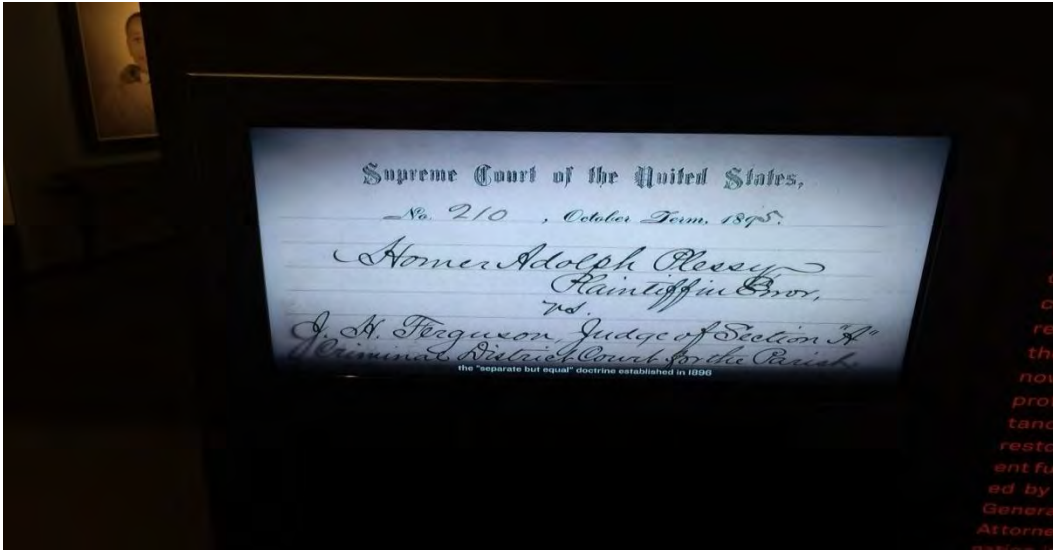 Supreme Court of the United States,
No. 210, October Term, 1895.
Homer Adolph Plessy
Plaintiff in Error,
vs.
J. H. Ferguson, Judge of Section "A"
Criminal District Court for the Parish
the "separate but equal" doctrine established in 1896
re
th
nov
pro
tanc
resto
ent fu
ed by
Genera
Attorne